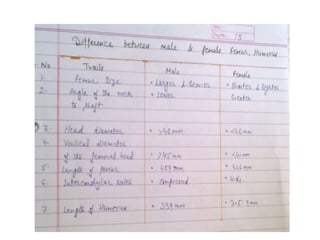 13
Difference between male & female Femur, Humerus
No Traits Male Female
1. Femur Size • Larger & Heavier • Shorter & lighter
2. Angle of the neck • Lesser Greater
to shaft
3. Head diameter • >46mm • <46mm
4. Vertical diameter
of the femoral head • >45mm • <41mm
5. Length of femur • 459mm • 426mm
6. Intercondylar notch • Compressed • Wide.
7. Length of Humerus • 339mm